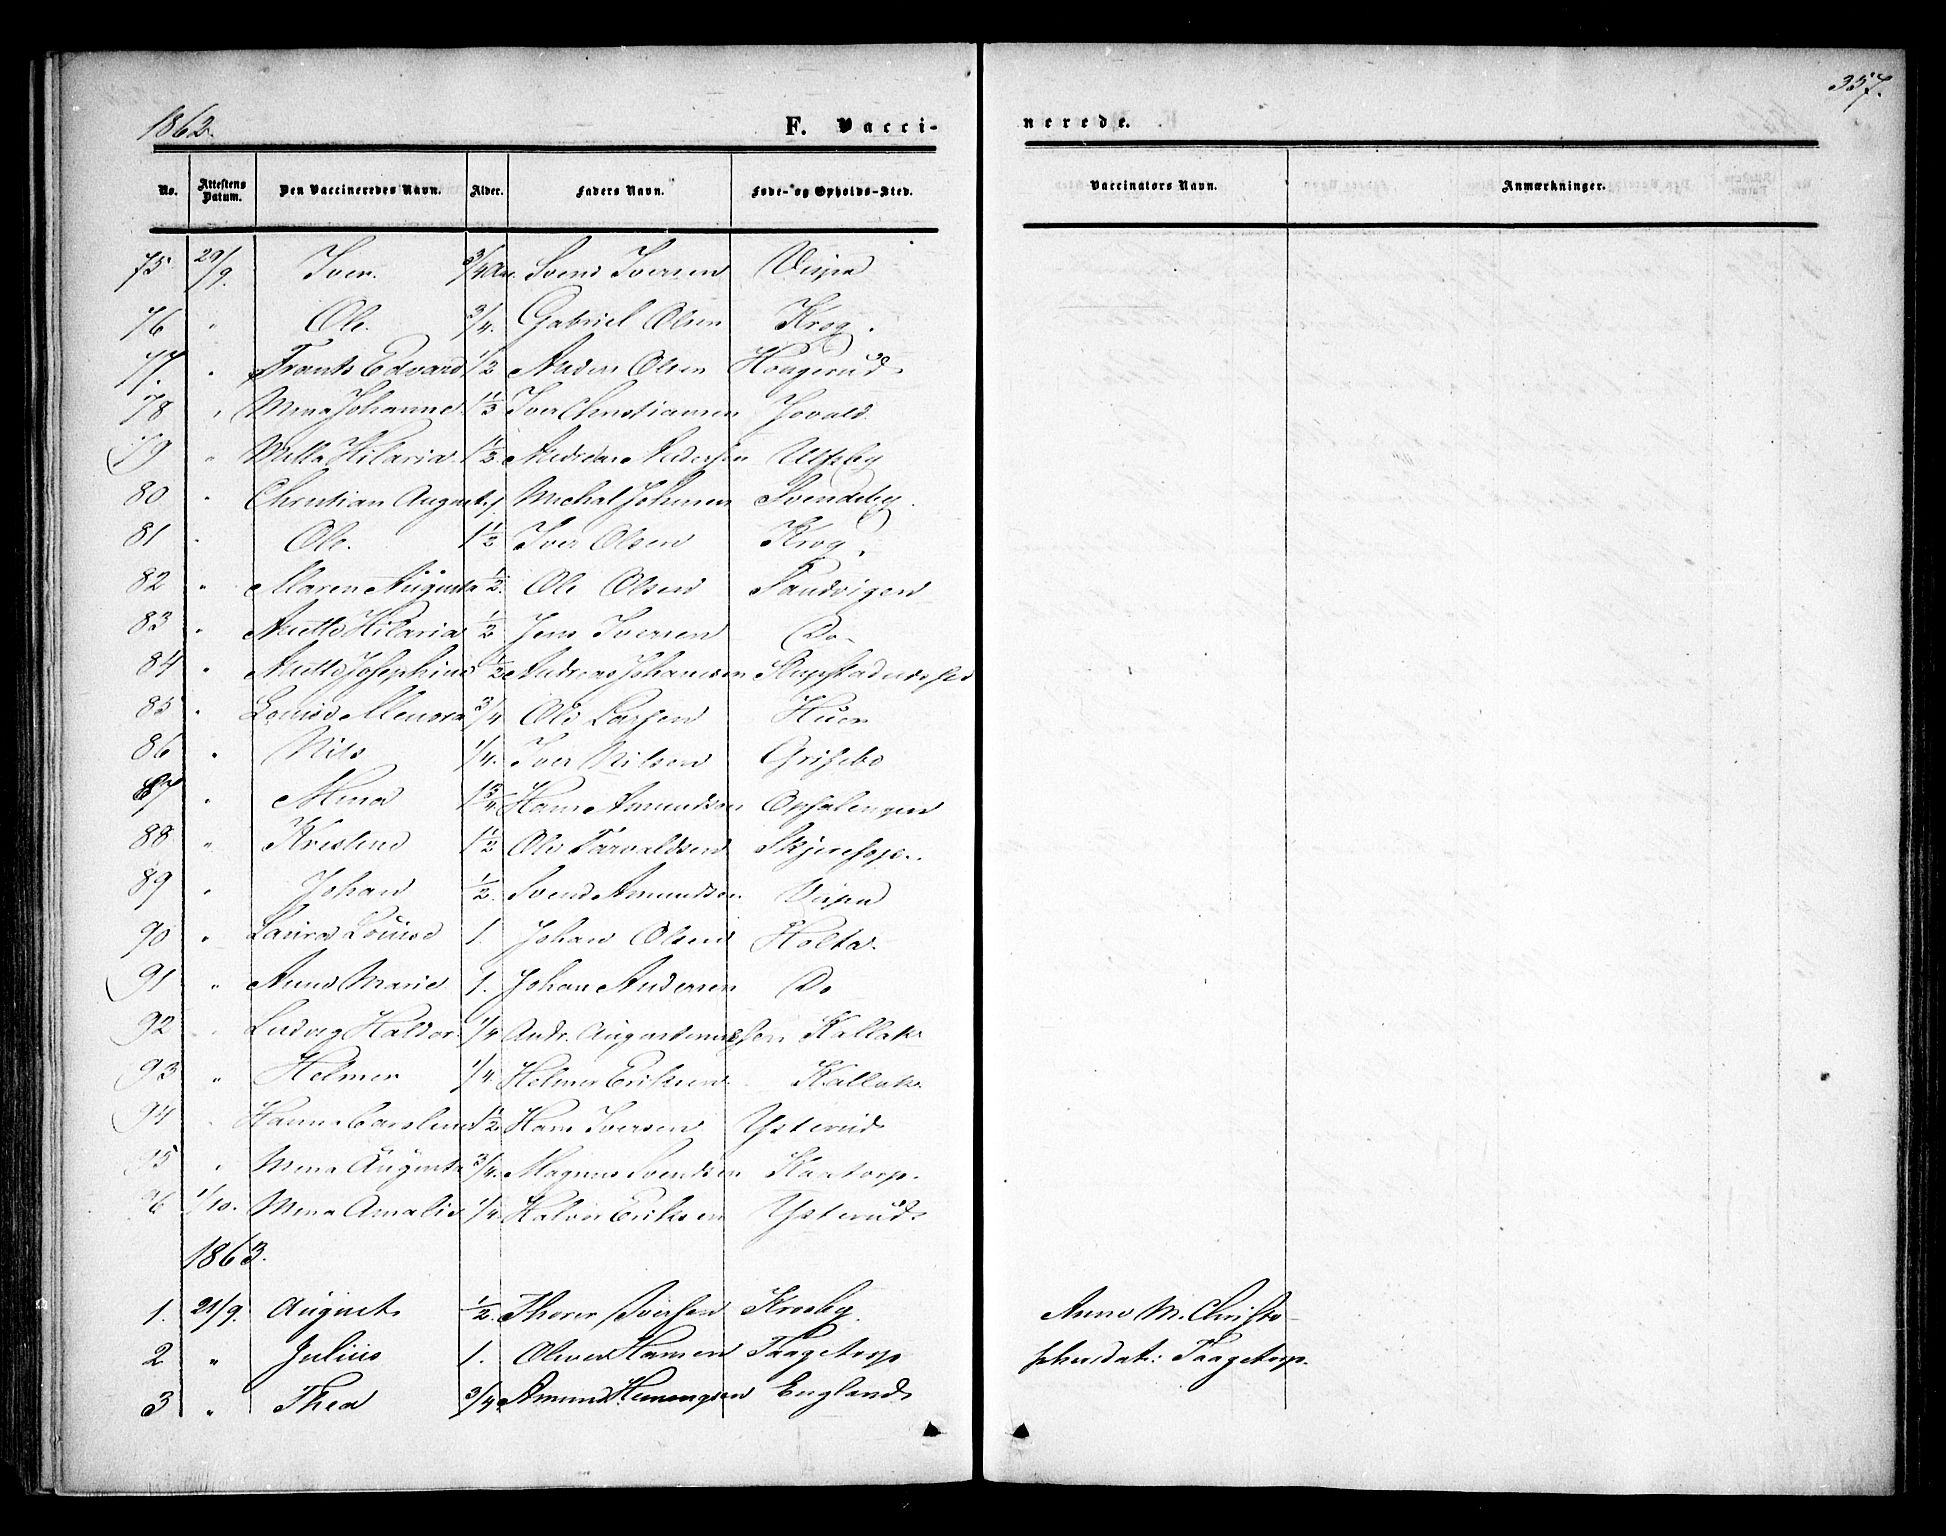 357.
1862.
F. Vacci-
nerede.
No. Attestens Datum. Den Vaccineredes Navn. Alder. Faders Navn. Føde- og Opholds-Sted. Vaccinators Navn. Anmærkninger.
75 29/9. Iver. 3/4 Aar Svend Iversen
76 " Ole. 3/4. Gabriel Olsen Krog.
77. " Frants Edvard 1/2 Anders Olsen Hougerud
78 " Mina Johanne 1 1/3 Iver Christiansen
79 " Milla Hilaria 1 1/2 Andreas Pedersen Ulfsby
80 " Christian August 1. Michal Johnsen Svendsby.
81 " Ole. 1 1/2 Iver Olsen Krog.
82 " Maren Augusta 1/2. Ole Olsen Sandvigen
83 " Anette Hilaria 1/2 Jens Iversen Do
84 " Anette Josephine 1/2 Andreas Johansen
85 " Louise Elenora 3/4 Ole Larsen Huer
86 " Nils 1/4. Iver Nilsen Grisebo
87 " Mina 1 3/4 Hans Amundsen
88 " " Kristine 1 1/2 Ole Tarvaldsen
89 " Johan 1/2. Svend Amundsen
90 " Laura Louise 1. Johan Olsen Holta.
91 " Anne Marie 1. Johan Andersen Do
92 " Ludvig Haldor. 1/4 Andr. Kallak
93 " Helmer 1/4. Helmer Eriksen Kallak
94 " Hanne Caroline 1 1/2 Hans Iversen Ysterud
95 " Mina Augusta 3/4. Magnus Svendsen Kaatorp.
96 1/10. Mina Amalie 1/4. Halvor Eriksen Ysterud
1863.
1. 21/9. August 1/2. Thorer Iversen Krosby. Anne M. Christo-
2 " Julius 1. Oliver Hansen Taagetorp phersdat: Taagetorp.
3 " Thea 3/4. Amund Hemmingsen England